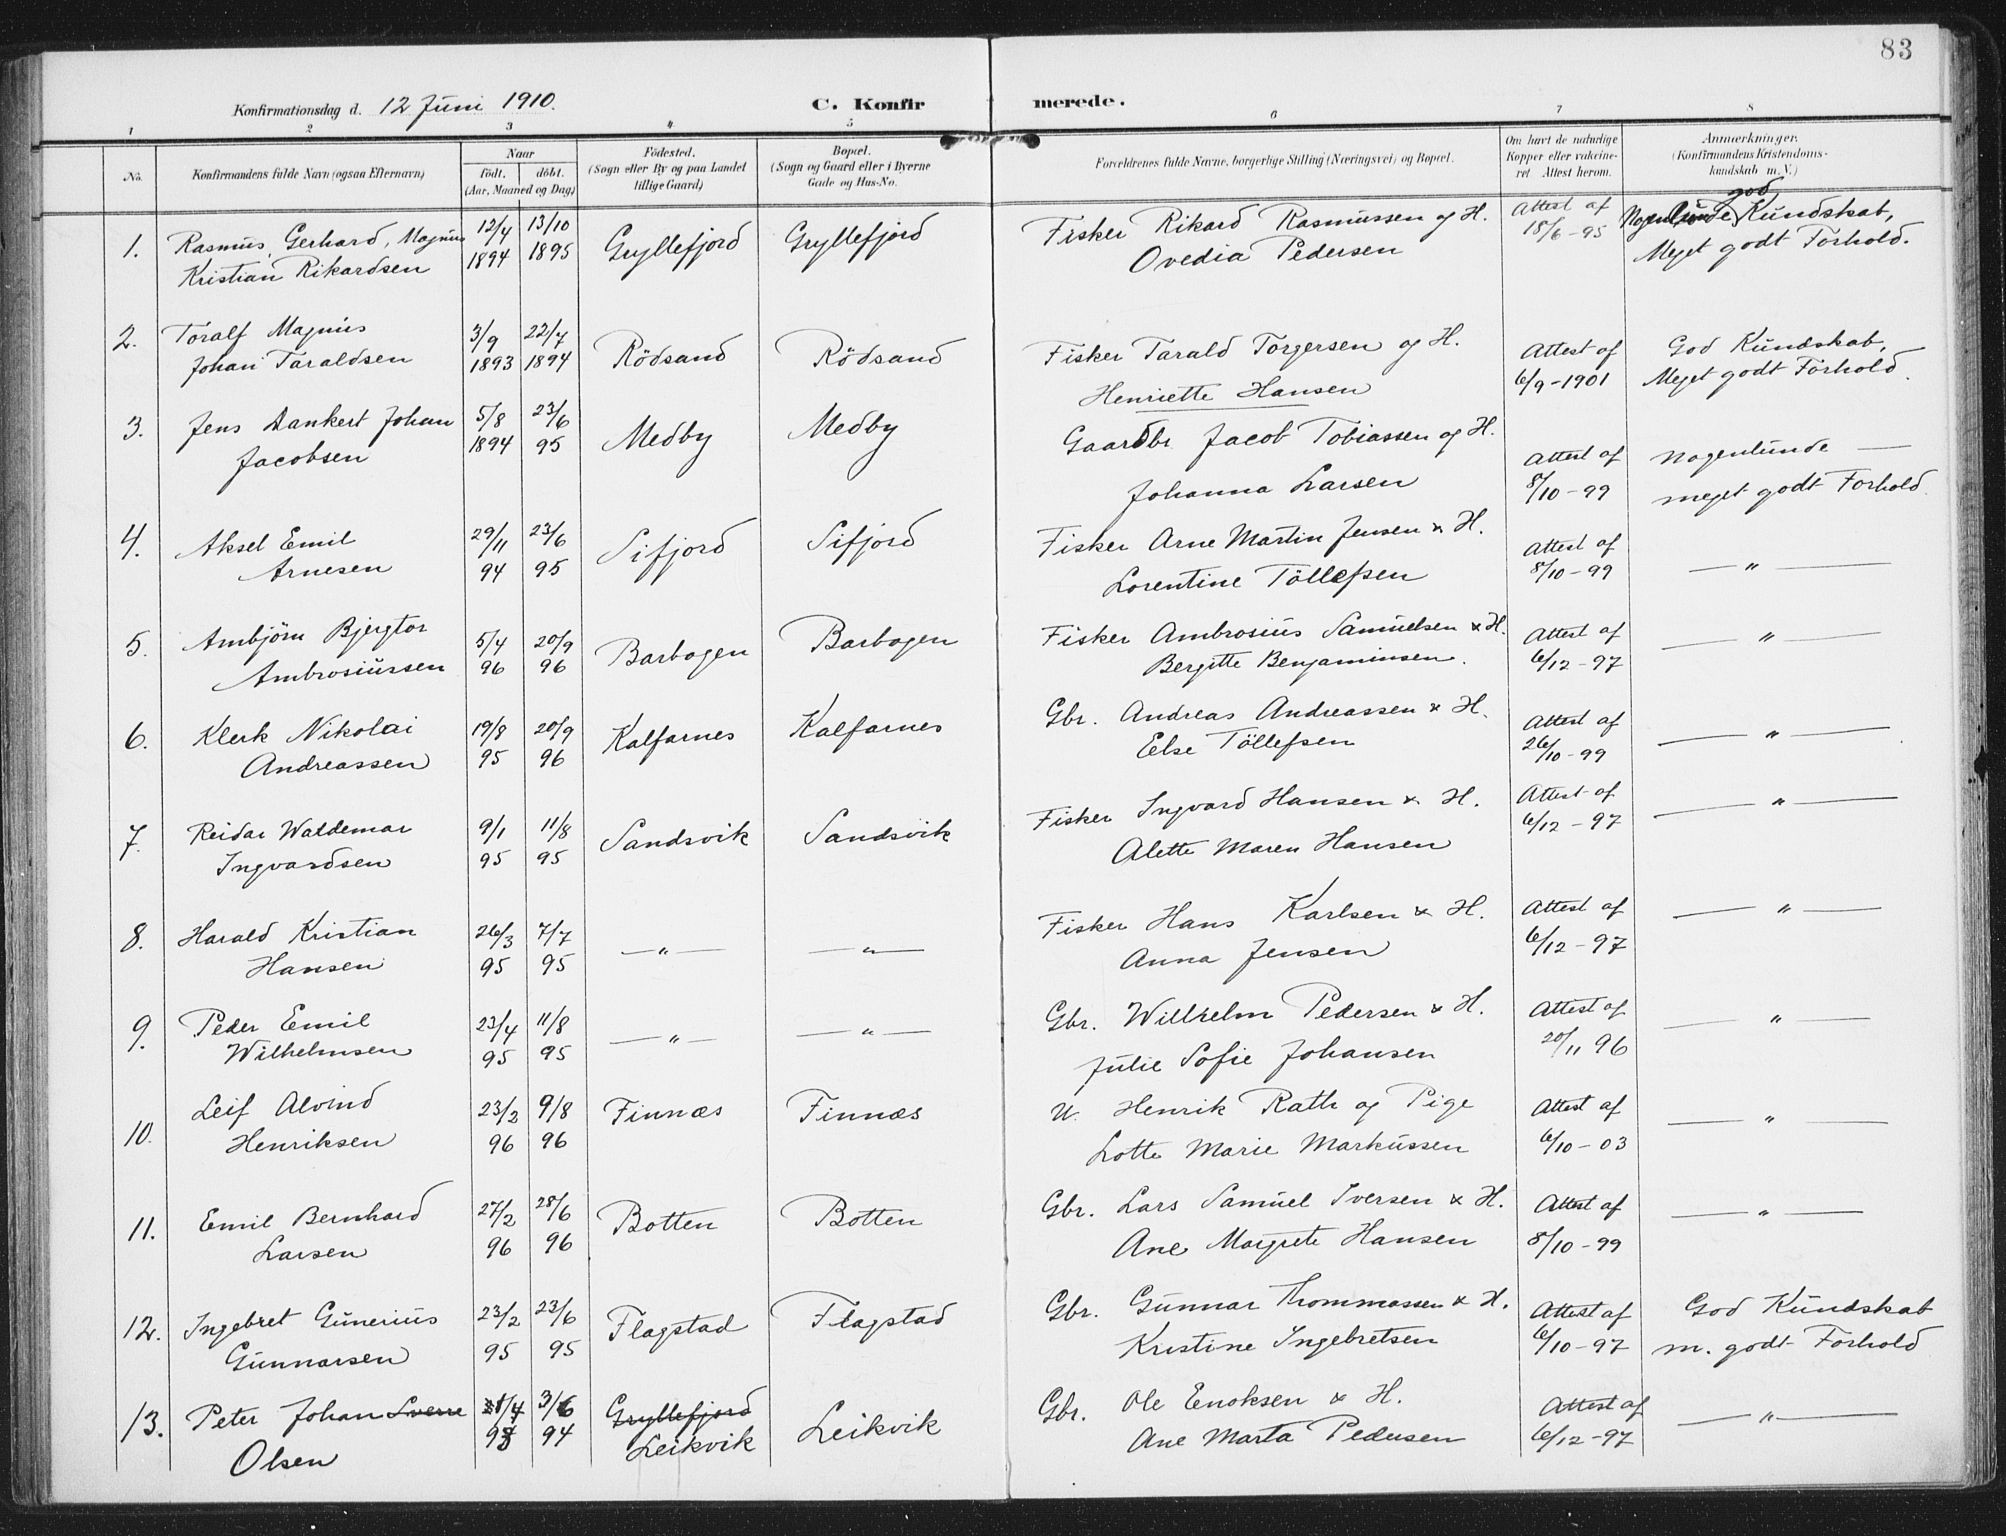 83
Konfirmationsdag d. 12 Juni 1910.
C. Konfirmerede.
1 2 3 4 5 6 7 8
No.
Konfirmandens fulde Navn (ogsaa Efternavn)
Naar
født. døbt.
(Aar, Maaned og Dag)
Fødested.
(Sogn eller By og paa Landet
tillige Gaard)
Bopæl.
(Sogn og Gaard eller i Byerne
Gade og Hus-No.
Forældrenes fulde Navne, borgerlige Stilling (Næringsvei) og Bopæl.
Om havt de naturlige
Kopper eller vakcine-
ret Attest herom.
Anmærkninger.
(Konfirmandens Kristendoms-
kundskab m. V.)
1. Rasmus, Gerhard, Magnus 12/4 13/10 Gryllefjord Gryllefjord Fisker Rikard Rasmussen og H. Attest af god Kundskab,
Kristian Rikardsen 1894 1895 Ovedia Pedersen 18/6-95 Meget godt Forhold.
2. Toralf Magnus 3/9 22/7 Rödsand Rödsand Fisker Tarald Torgersen og H. Attest af God Kundskab,
Johan Taraldsen 1893 1894 Henriette Hansen 6/9-1901 Meget godt Forhold.
3. Jens Dankert Johan 5/8 23/6 Medby Medby Gaardbr Jacob Tobiassen og H. Attest af Nogenlunde —
Jacobsen 1894 95 Johanna Larsen 8/10-99 meget godt Forhold.
4. Aksel Emil 29/11 23/6 Sifjord Sifjord Fisker Arne Martin Jensen & H. Attest af — " —
Arnesen 94 95 Lorentine Töllefsen 8/10-99
5. Arnbjörn Bjergtor 5/4 20/9 Barbogen Barbogen Fisker Ambrosius Samuelsen & H. Attest af — " —
Ambrosiussen 96 96 Bergitte Benjaminsen. 6/12-97
6. Klerk Nikolai 19/8 20/9 Kalfarnes Kalfarnes Gbr. Andreas Andreassen & H. Attest af — " —
Andreassen 95 96 Else Töllefsen 26/10-99
7. Reidar Waldemar 9/1 11/8 Sandsvik Sandsvik Fisker Ingvard Hansen & H. Attest af — " —
Ingvardsen 95 95 Alette Maren Hansen 6/12-97
8. Harald Kristian 26/3 7/7 — " — — " — Fisker Hans Karlsen & H. Attest af — " —
Hansen 95 95 Anna Jensen 6/12-97
9. Peder Emil 23/4 11/8 — " — — " — Gbr. Wilhelm Pedersen & H. Attest af — " —
Wilhelmsen 95 95 Julie Sofie Johansen 20/11 96
10. Leif Alvind 23/2 9/8 Finnæs Finnæs U. Henrik Rath og Pige Attest af — " —
Henriksen 96 96 Lotte Marie Markussen 6/10-03
11. Emil Bernhard 27/2 28/6 Botten Botten Gbr. Lars Samuel Iversen & H. Attest af — " —
Larsen 96 96 Ane Margrete Hansen 8/10-99
12. Ingebret Gunerius 23/2 23/6 Flagstad Flagstad Gbr. Gunnar Thommassen & H. Attest af God Kundskab
Gunnarsen 95 95 Kristine Ingebretsen 6/10-97 m. godt Forhold
13. Peter Johan Sverre 3/6 Gryllefjord Leikvik Gbr. Ole Enoksen & H. Attest af — " —
Olsen 94 Leikvik Ane Marta Pedersen 6/12-97